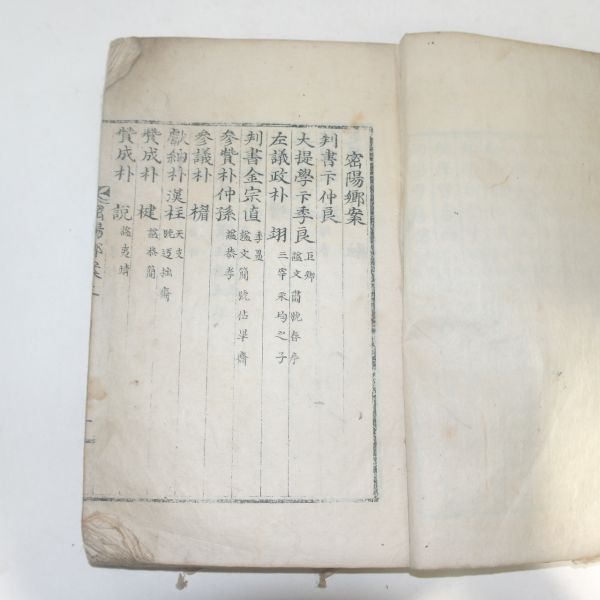 密陽鄉案
判書卞仲良
大提學卞季良 巨卿 諡文肅號春亭
左議政朴翊 三宰永均之子
判書金宗直 季昷 諡文簡號佔畢齋
參贊朴仲孫 諡恭孝
參議朴楣
獻納朴漢柱 天支 號迂拙齋
贊成朴楗 諡恭簡
贊成朴說 諡夷靖
密陽鄉案
一